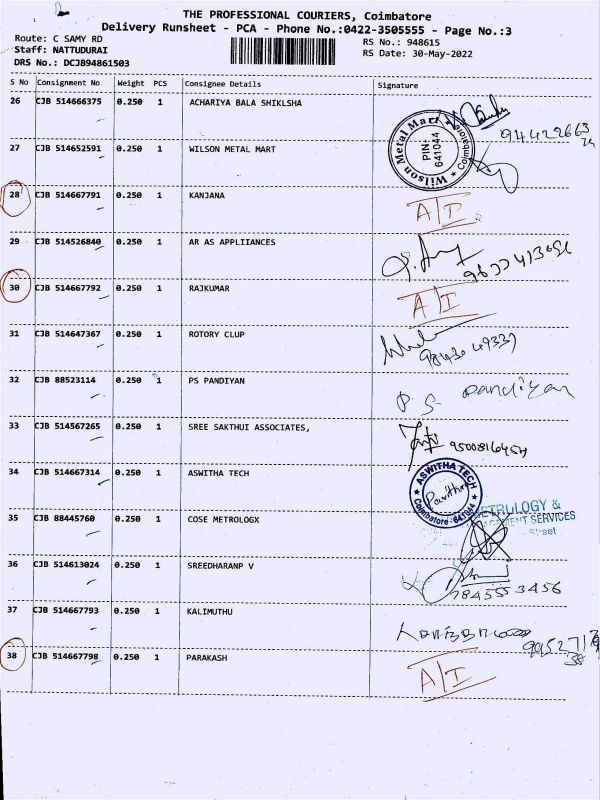 THE PROFESSIONAL COURIERS, Coimbatore
Delivery Runsheet - PCA - Phone No.:0422-3505555 - Page No.:3
Route: C SAMY RD
RS No.: 948615
Staff: NATTUDURAI
RS Date: 30-May-2022
DRS No.: DCJB94861503
S No Consignment No Weight PCS Consignee Details Signature
26 CJB 514666375 0.250 1 ACHARIYA BALA SHIKLSHA
27 CJB 514652591 0.250 1 WILSON METAL MART
Wilson Metal Mart Coimbatore
PIN-
641044
28 CJB 514667791 0.250 1 KANJANA A/I
29 CJB 514526840 0.250 1 AR AS APPLIIANCES
30 CJB 514667792 0.250 1 RAJKUMAR A/I
31 CJB 514647367 0.250 1 ROTORY CLUP
32 CJB 88523114 0.250 1 PS PANDIYAN P. S. Pandiyan
33 CJB 514567265 0.250 1 SREE SAKTHUI ASSOCIATES,
34 CJB 514667314 0.250 1 ASWITHA TECH
ASWITHA TECH
Coimbatore-641044
35 CJB 88445760 0.250 1 COSE METROLOGX
METROLOGY &
SERVICES
Street
36 CJB 514613024 0.250 1 SREEDHARANP V
7845553456
37 CJB 514667793 0.250 1 KALIMUTHU
38 CJB 514667798 0.250 1 PARAKASH A/I